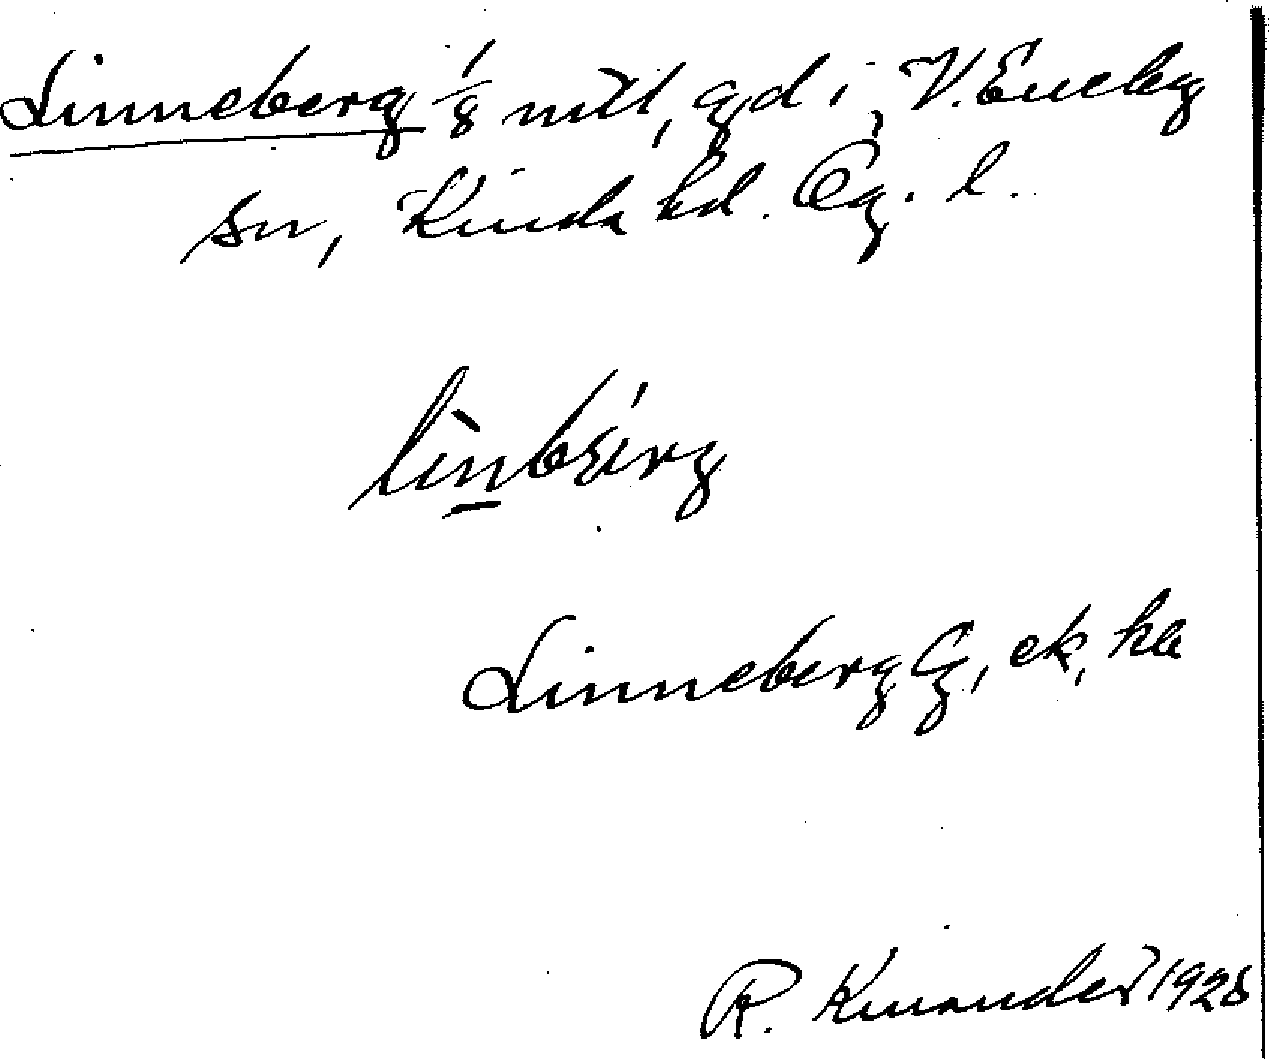 Linneberg 1/8 mtl, gd i V. Eneby
sn, Kinda hd. Ög. l.
lìnbérg
Linneberg G, ek, ka
R. Kinander 1928